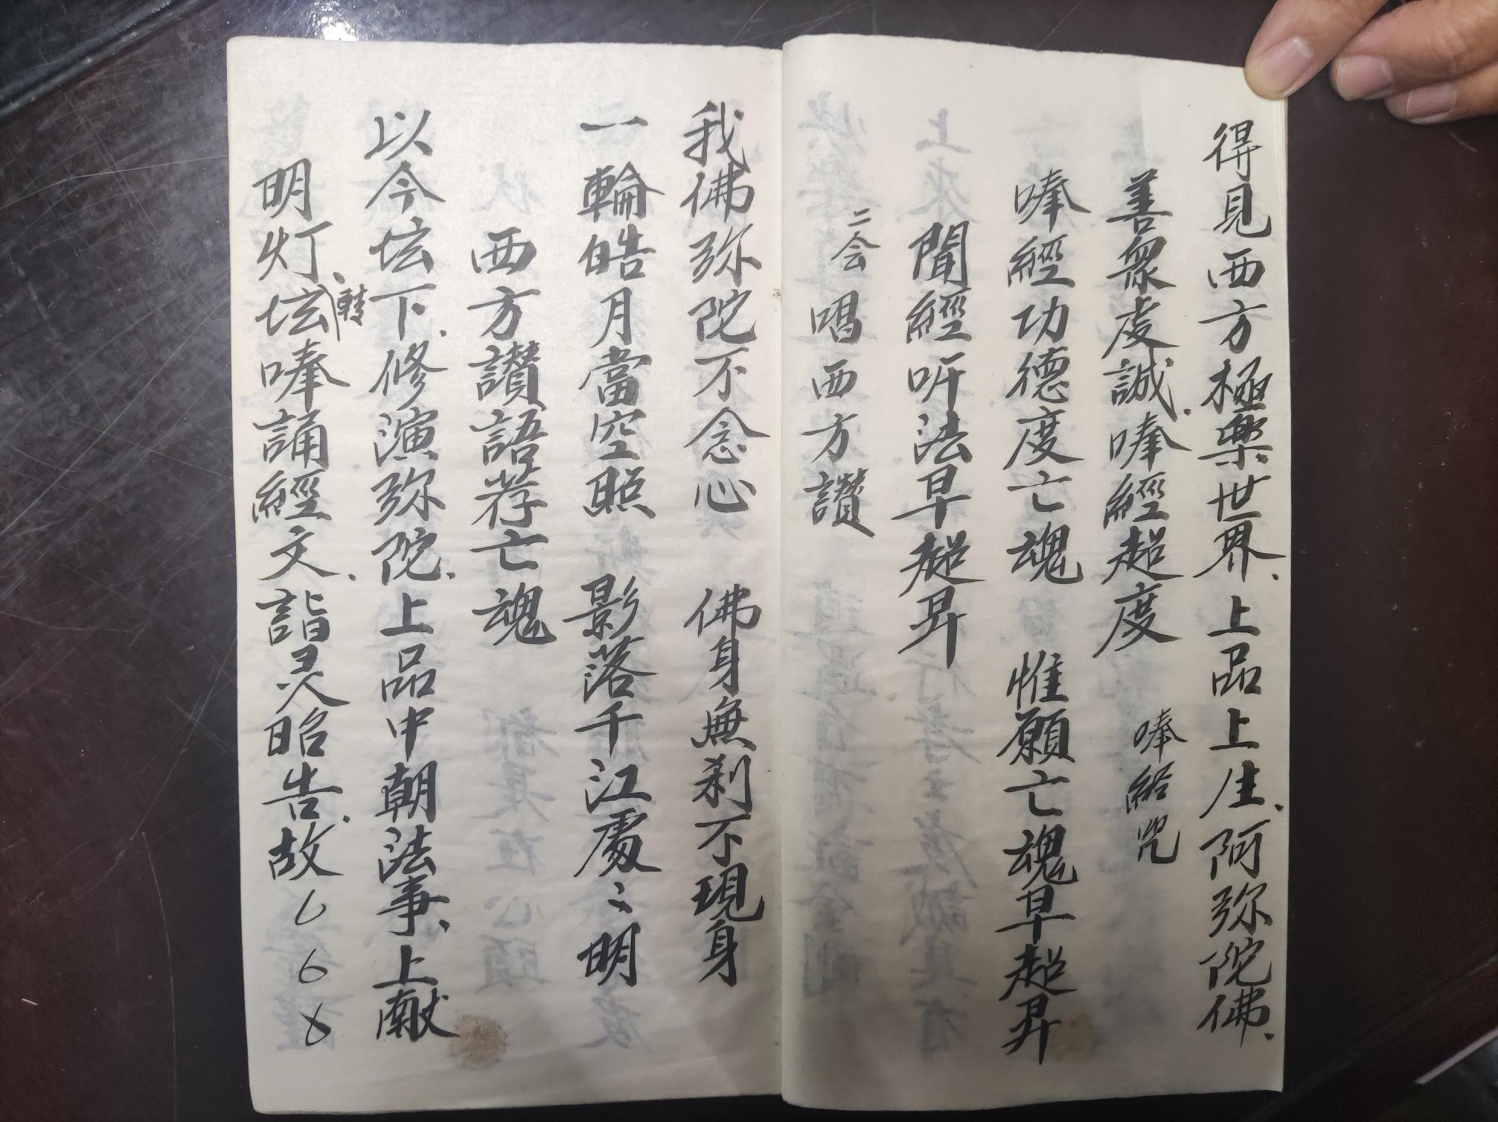 得見西方極樂世界、上品上生、阿弥陀佛、
善眾虔誠、唪經超度 唪給咒
唪經功德度亡魂 惟願亡魂早超昇
聞經听法早超昇
二会 唱西方讃
我佛弥陀不念心 佛身無刹不現身
一輪皓月當空照 影落千江處〻明
西方讃語荐亡魂
以今坛下、修演弥陀、上品中朝法事、上献
明灯、坛轉唪誦經文、詣灵昭告、故